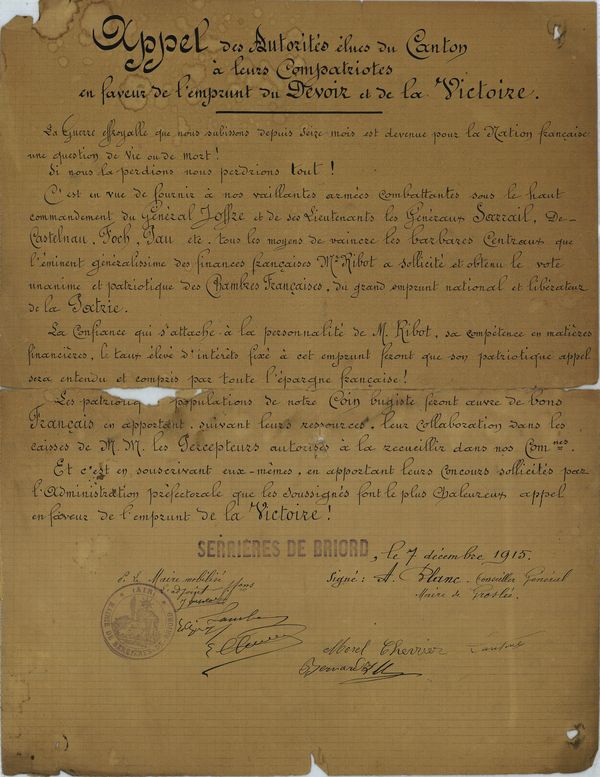 Appel des Autorités élues du Canton
à leurs Compatriotes
en faveur de l'emprunt du Devoir et de la Victoire.
La Guerre effroyable que nous subissons depuis seize mois est devenue pour la Nation française
une question de Vie ou de mort !
Si nous la perdions nous perdrions tout !
C'est en vue de fournir à nos vaillantes armées combattantes sous le haut
commandement du Général Joffre et de ses Lieutenants les Généraux Sarrail, De-
Castelnau, Foch, Pau etc. tous les moyens de vaincre les barbares Centraux que
l'éminent généralissime des finances françaises Mr Ribot a sollicité et obtenu le vote
unanime et patriotique des Chambres Françaises, du grand emprunt national et libérateur
de la Patrie.
La Confiance qui s'attache à la personnalité de M. Ribot, sa compétence en matières
financières, le taux élevé d'intérêts fixé à cet emprunt feront que son patriotique appel
sera entendu et compris par toute l'épargne française !
Les patriotiq populations de notre Coin bugiste feront œuvre de bons
Français en apportant, suivant leurs ressources, leur collaboration dans les
caisses de M.M. les Percepteurs autorisés à la recueillir dans nos Comnes.
Et c'est en souscrivant eux-mêmes, en apportant leurs Concours sollicités par
l'Administration préfectorale que les soussignés font le plus chaleureux appel
en faveur de l'emprunt de la Victoire !
SERRIÈRES DE BRIORD, le 7 décembre 1915.
P. le Maire mobilisé
l'adjoint
Signé : A. Plane. Conseiller Général
Maire de Groslée
MAIRIE DE SERRIÈRES DE BRIORD
Morel Chevrier
Bernard